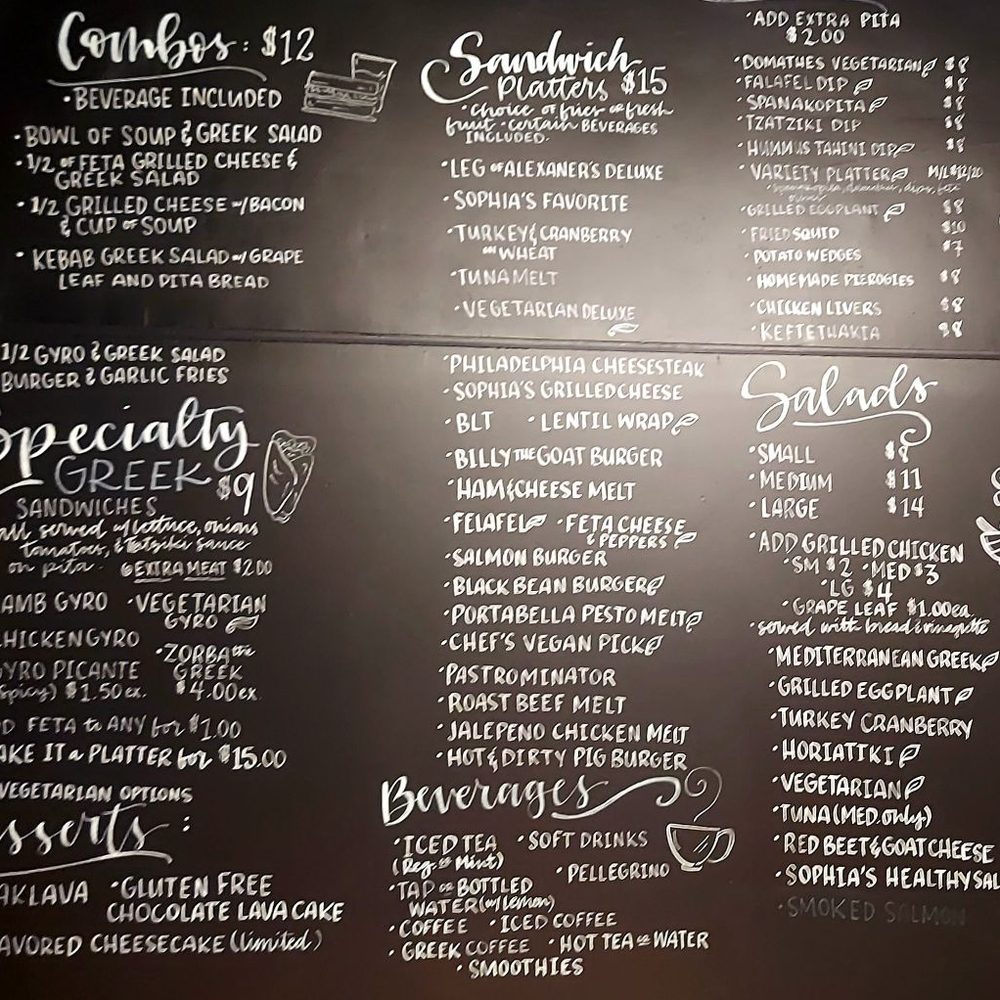 Combos: $12
• BEVERAGE INCLUDED
• BOWL OF SOUP & GREEK SALAD
• 1/2 OF FETA GRILLED CHEESE &
GREEK SALAD
• 1/2 GRILLED CHEESE w/BACON
& CUP OF SOUP
• KEBAB GREEK SALAD w/ GRAPE
LEAF AND PITA BREAD
1/2 GYRO & GREEK SALAD
BURGER & GARLIC FRIES
Specialty
GREEK $9
SANDWICHES
all served w/ lettuce, onions
tomatoes, & Tatziki sauce
on pita. EXTRA MEAT $2.00
AMB GYRO • VEGETARIAN
GYRO
HICKEN GYRO
• ZORBA THE
GYRO PICANTE GREEK
(spicy) $1.50 ex. $4.00 ex
D FETA to ANY for $1.00
AKE IT a PLATTER for $15.00
VEGETARIAN OPTIONS
sserts:
AKLAVA • GLUTEN FREE
CHOCOLATE LAVA CAKE
AVORED CHEESECAKE (limited)
Sandwich
Platters $15
• choice of fries or fresh
fruit • certain BEVERAGES
INCLUDED.
• LEG OF ALEXANER'S DELUXE
• SOPHIA'S FAVORITE
• TURKEY & CRANBERRY
ON WHEAT
• TUNA MELT
• VEGETARIAN DELUXE
• PHILADELPHIA CHEESESTEAK
• SOPHIA'S GRILLED CHEESE
• BLT • LENTIL WRAP
• BILLY THE GOAT BURGER
• HAM & CHEESE MELT
• FELAFEL • FETA CHEESE
& PEPPERS
• SALMON BURGER
• BLACK BEAN BURGER
• PORTABELLA PESTO MELT
• CHEF'S VEGAN PICK
• PASTROMINATOR
• ROAST BEEF MELT
• JALEPENO CHICKEN MELT
• HOT & DIRTY PIG BURGER
Beverages
• ICED TEA • SOFT DRINKS
(Reg. or Mint)
• PELLEGRINO
• TAP OR BOTTLED
WATER (w/ lemon)
• COFFEE • ICED COFFEE
• GREEK COFFEE • HOT TEA OR WATER
• SMOOTHIES
• ADD EXTRA PITA
$2.00
• DOMATHES VEGETARIAN $8
• FALAFEL DIP $8
• SPANAKOPITA $8
• TZATZIKI DIP $8
• HUMMUS TAHINI DIP $8
• VARIETY PLATTER M/L $12/20
• GRILLED EGGPLANT $8
• FRIED SQUID $10
• POTATO WEDGES $7
• HOMEMADE PIEROGIES $8
• CHICKEN LIVERS $8
• KEFTETHAKIA $8
Salads
• SMALL $8
• MEDIUM $11
• LARGE $14
• ADD GRILLED CHICKEN
• SM $2 • MED $3
• LG $4
• GRAPE LEAF $1.00ea
• served with bread & vinegrette
• MEDITERRANEAN GREEK
• GRILLED EGGPLANT
• TURKEY CRANBERRY
• HORIATIKI
• VEGETARIAN
• TUNA (MED. only)
• RED BEET & GOAT CHEESE
• SOPHIA'S HEALTHY SAL
• SMOKED SALMON